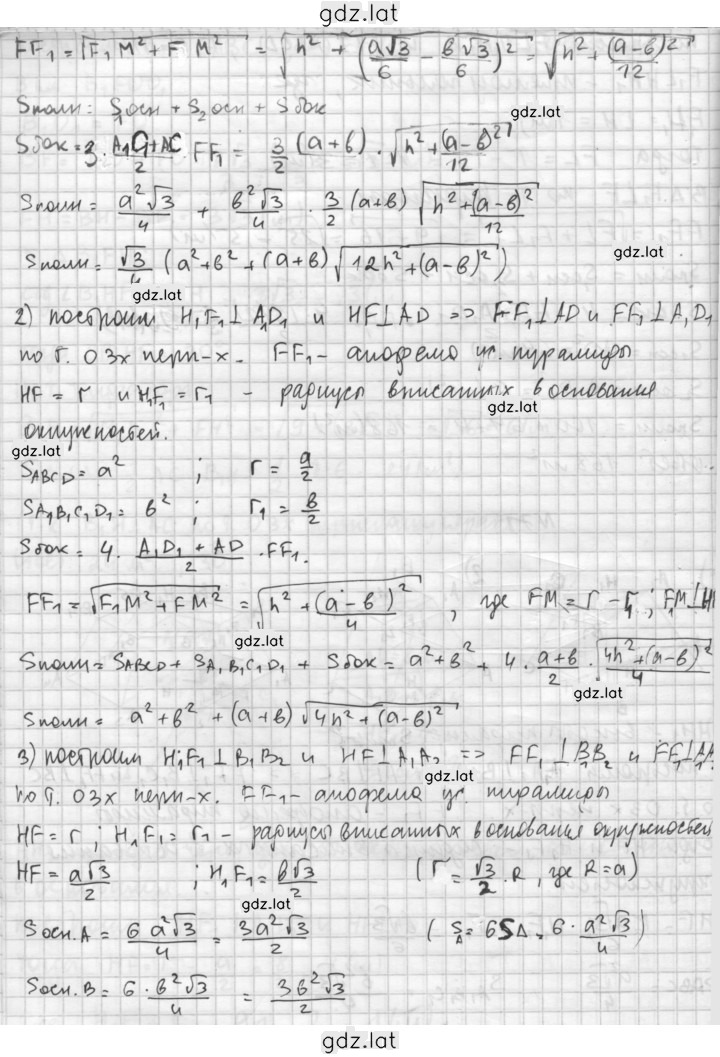 gdz.lat
FF₁ = √(F₁M² + FM²) = √(h² + (a√3/6 − в√3/6)²) = √(h² + (a−в)²/12)
Sполн = S₁осн + S₂осн + Sбок
gdz.lat
Sбок = 3 · (A₁C₁ + AC)/2 · FF₁ = 3/2 (a+в) · √(h² + (a−в)²/12)
gdz.lat
Sполн = a²√3/4 + в²√3/4 · 3/2 (a+в) √(h² + (a−в)²/12)
Sполн = √3/4 (a² + в² + (a+в) √(12h² + (a−в)²))
gdz.lat
gdz.lat
2) построим H₁F₁ ⊥ A₁D₁ и HF ⊥ AD => FF₁ ⊥ AD и FF₁ ⊥ A₁D₁
по т. о 3х перп-х. FF₁ - апофема ус. пирамиды
HF = r и H₁F₁ = r₁ - радиусы вписанных в основания
gdz.lat
окружностей.
gdz.lat
S ABCD = a² ; r = a/2
S A₁B₁C₁D₁ = в² ; r₁ = в/2
Sбок = 4 · (A₁D₁ + AD)/2 · FF₁.
gdz.lat
FF₁ = √(F₁M² + FM²) = √(h² + (a−в)²/4) , где FM = r − r₁ ; F₁M ⊥ H
gdz.lat
Sполн = S ABCD + S A₁B₁C₁D₁ + Sбок = a² + в² + 4 · (a+в)/2 · √((4h² + (a−в)²)/4)
gdz.lat
Sполн = a² + в² + (a+в) √(4h² + (a−в)²)
3) построим H₁F₁ ⊥ B₁B₂ и HF ⊥ A₁A₂ => FF₁ ⊥ B₁B₂ и FF₁ ⊥ A₁A
gdz.lat
по т. о 3х перп-х. FF₁ - апофема ус. пирамиды
HF = r ; H₁F₁ = r₁ - радиусы вписанных в основания окружностей
HF = a√3/2 ; H₁F₁ = в√3/2 (r = √3/2 · R, где R = a)
gdz.lat
Sосн.A = 6a²√3/4 = 3a²√3/2 (S A = 6SΔ = 6 · a²√3/4)
gdz.lat
Sосн.B = 6 · в²√3/4 = 3в²√3/2
gdz.lat